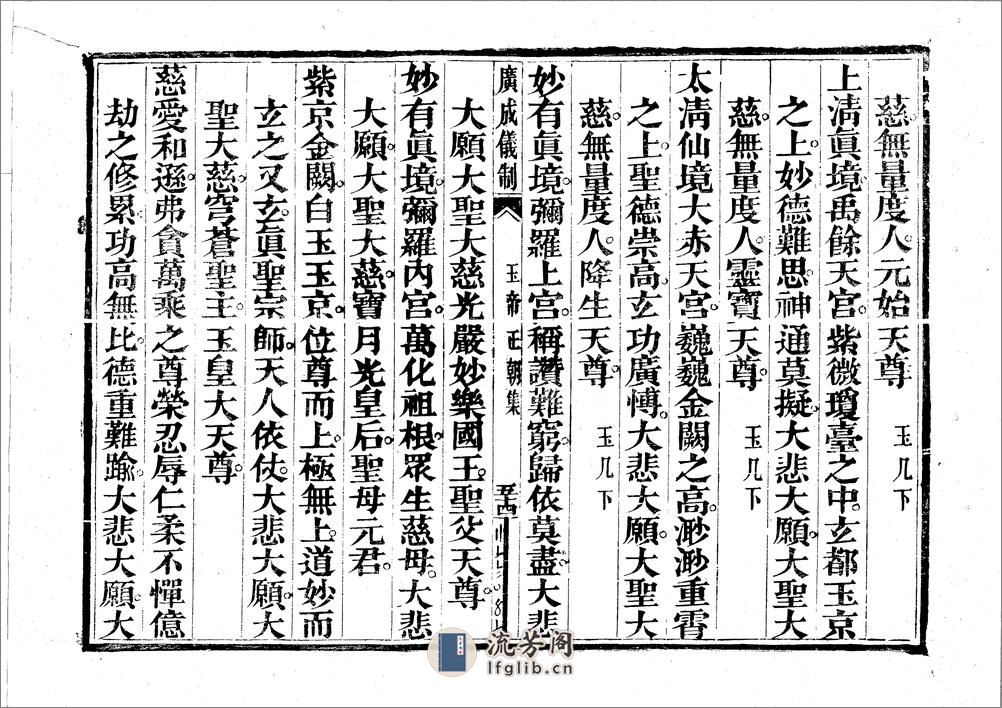 慈。無量度人元始天尊　玉几下
上淸眞境。禹餘天宮。紫微瓊臺之中。玄都玉京
之上。妙德難思。神通莫擬。大悲大願。大聖大
慈。無量度人。靈寶天尊。　玉几下
太淸仙境。大赤天宮。巍巍金闕之高。渺渺重霄
之上。聖德崇高。玄功廣愽。大悲大願。大聖大
慈。無量度人。降生天尊。　玉几下
妙有眞境。彌羅上宮。稱讚難窮。歸依莫盡。大悲
廣成儀制　玉帝正朝集
大願大聖大慈光嚴妙樂國王。聖父天尊。
妙有眞境。彌羅內宮。萬化祖根。眾生慈母。大悲
大願。大聖大慈。寶月光皇后。聖母元君。
紫京金闕。白玉玉京。位尊而上。極無上。道妙而
玄之又玄。眞聖宗師。天人依仗。大悲大願。大
聖大慈。穹蒼聖主。玉皇大天尊。
慈愛和遜。弗貪萬乘之尊榮。忍辱仁柔。不憚億
劫之修累。功高無比。德重難踰。大悲大願。大
流芳阁
lfglib.cn